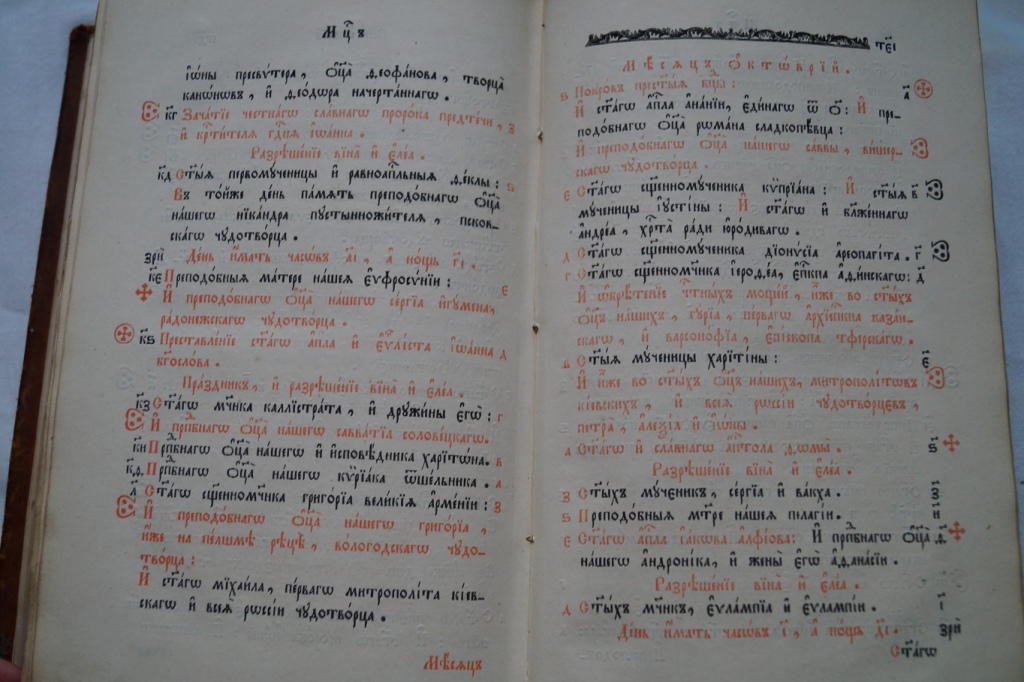 Мц҃ъ
і҆ѡ́ны пресвѵ́тера, ѻ҆ц҃а̀ ѳ̑еофа́нова, творца̀
кано́нѡвъ, и҆ ѳ̑ео́дѡра начерта́ннагѡ.
к҃г Зача́тїе честна́гѡ сла́внагѡ проро́ка предте́чи, з
и҆ крⷭ҇ти́телѧ гдⷭ҇нѧ і҆ѡа́нна.
Разрѣше́нїе вїна̀ и҆ є҆ле́а.
к҃д Ст҃ы́ѧ первомꙋ́ченицы и҆ равноапⷭ҇льныѧ ѳ̑е́клы: ѕ
Въ то́йже де́нь па́мѧть преподо́бнагѡ ѻ҆ц҃а̀
на́шегѡ ніка́ндра пꙋстынножи́телѧ, пско́в-
скагѡ чꙋдотво́рца.
зри̑ Де́нь и҆́мать часѡ́въ а҃і, а҆ но́щь г҃і.
к҃е Преподо́бныѧ ма́тере на́шеѧ є҆ѵфросѵ́нїи: є
И҆ преподо́бнагѡ ѻ҆ц҃а̀ на́шегѡ се́ргїа и҆гꙋ́мена,
ра́донежскагѡ чꙋдотво́рца.
к҃ѕ Преставле́нїе ст҃а́гѡ а҆пⷭ҇ла и҆ є҆ѵⷢ҇лі́ста і҆ѡа́нна д
бг҃осло́ва.
Пра́здникъ, и҆ разрѣше́нїе вїна̀ и҆ є҆ле́а.
к҃з Ст҃а́гѡ мч҃ника каллїстра́та, и҆ дрꙋжи́ны є҆гѡ̀: г
И҆ прпⷣбнагѡ ѻ҆ц҃а̀ на́шегѡ савва́тїа солове́цкагѡ.
к҃и Прпⷣбнагѡ ѻ҆ц҃а̀ на́шегѡ и҆ и҆сповѣ́дника харїтѡ́на. в
к҃ѳ Прпⷣбнагѡ ѻ҆ц҃а̀ на́шегѡ кѵ̈рїа́ка ѿше́льника. а
л҃ Ст҃а́гѡ сщ҃енномч҃нка григо́рїа вели́кїѧ а҆рме́нїи: з
И҆ преподо́бнагѡ ѻ҆ц҃а̀ на́шегѡ григо́рїа,
и҆́же на пе́лшмѣ рѣцѣ̀, вологодскагѡ чꙋдо-
тво́рца:
И҆ ст҃а́гѡ мїхаи́ла, пе́рвагѡ митрополі́та кі́ев-
скагѡ и҆ всеѧ̀ рѡссі́и чꙋдотво́рца.
Мѣ́сѧцъ
тє҃і
Мѣ́сѧцъ ѻ҆ктѡ́врїй.
ѕ Покро́въ прест҃ы́ѧ бцⷣы:
И҆ ст҃а́гѡ а҆пⷭ҇ла а҆на́нїи, є҆ди́нагѡ ѿ ѻ҃: И҆ пре- а҃
подо́бнагѡ ѻ҆ц҃а̀ рѡма́на сладкопѣ́вца:
И҆ преподо́бнагѡ ѻ҆ц҃а̀ на́шегѡ са́ввы, ви́шер-
скагѡ чꙋдотво́рца.
є Ст҃а́гѡ сщ҃енномꙋ́ченика кѷпрїа́на: И҆ ст҃ы́ѧ в҃
мꙋ́ченицы і҆ꙋстїны: И҆ ст҃а́гѡ и҆ бл҃же́ннагѡ
а҆ндре́а, хрⷭ҇та̀ ра́ди ю҆ро́дивагѡ.
д Ст҃а́гѡ сщ҃енномꙋ́ченика дїонѵ́сїа а҆реопагі́та. г҃
г Ст҃а́гѡ сщ҃енномч҃нка і҆ероѳ̑е́а, є҆пⷭ҇кпа а҆ѳи́нскагѡ: д҃
И҆ ѡ҆брѣ́тенїе чтⷭ҇ны́хъ моще́й, и҆̀же во ст҃ы́хъ
ѻ҆ц҃ъ на́шихъ, гꙋ́рїа, пе́рвагѡ а҆рхїепⷭ҇кпа каза́н-
скагѡ, и҆ варсоно́фїа, є҆пі́скопа тфе́рскагѡ.
в Ст҃ы́ѧ мꙋ́ченицы харїті́ны: є҃
И҆ и҆̀же во ст҃ы́хъ ѻ҆ц҃ъ на́шихъ, митрополі́товъ
кі́евскихъ, и҆ всеѧ̀ рѡссі́и чꙋдотво́рцевъ,
петра̀, а҆леѯі́а и҆ і҆ѡ́ны.
а Ст҃а́гѡ и҆ сла́внагѡ а҆пⷭ҇тола ѳ̑ѡмы̀. ѕ҃
Разрѣше́нїе вїна̀ и҆ є҆ле́а.
з Ст҃ы́хъ мꙋ́ченикъ, се́ргїа и҆ ва́кха. з҃
ѕ Преподо́бныѧ мт҃ре на́шеѧ пелагі́и. и҃
є Ст҃а́гѡ а҆пⷭ҇ла і҆а́кѡва а҆лфе́ова: И҆ прпⷣбнагѡ ѻ҆ц҃а̀ ѳ҃
на́шегѡ а҆ндроні́ка, и҆ жены̀ є҆гѡ̀ а҆ѳана́сїи.
Разрѣше́нїе вїна̀ и҆ є҆ле́а.
д Ст҃ы́хъ мч҃никъ, є҆ѵла́мпїа и҆ є҆ѵлампі́и. і҃
Де́нь и҆́мать часѡ́въ і҃, а҆ но́щь д҃і. зри̑
Ст҃а́гѡ